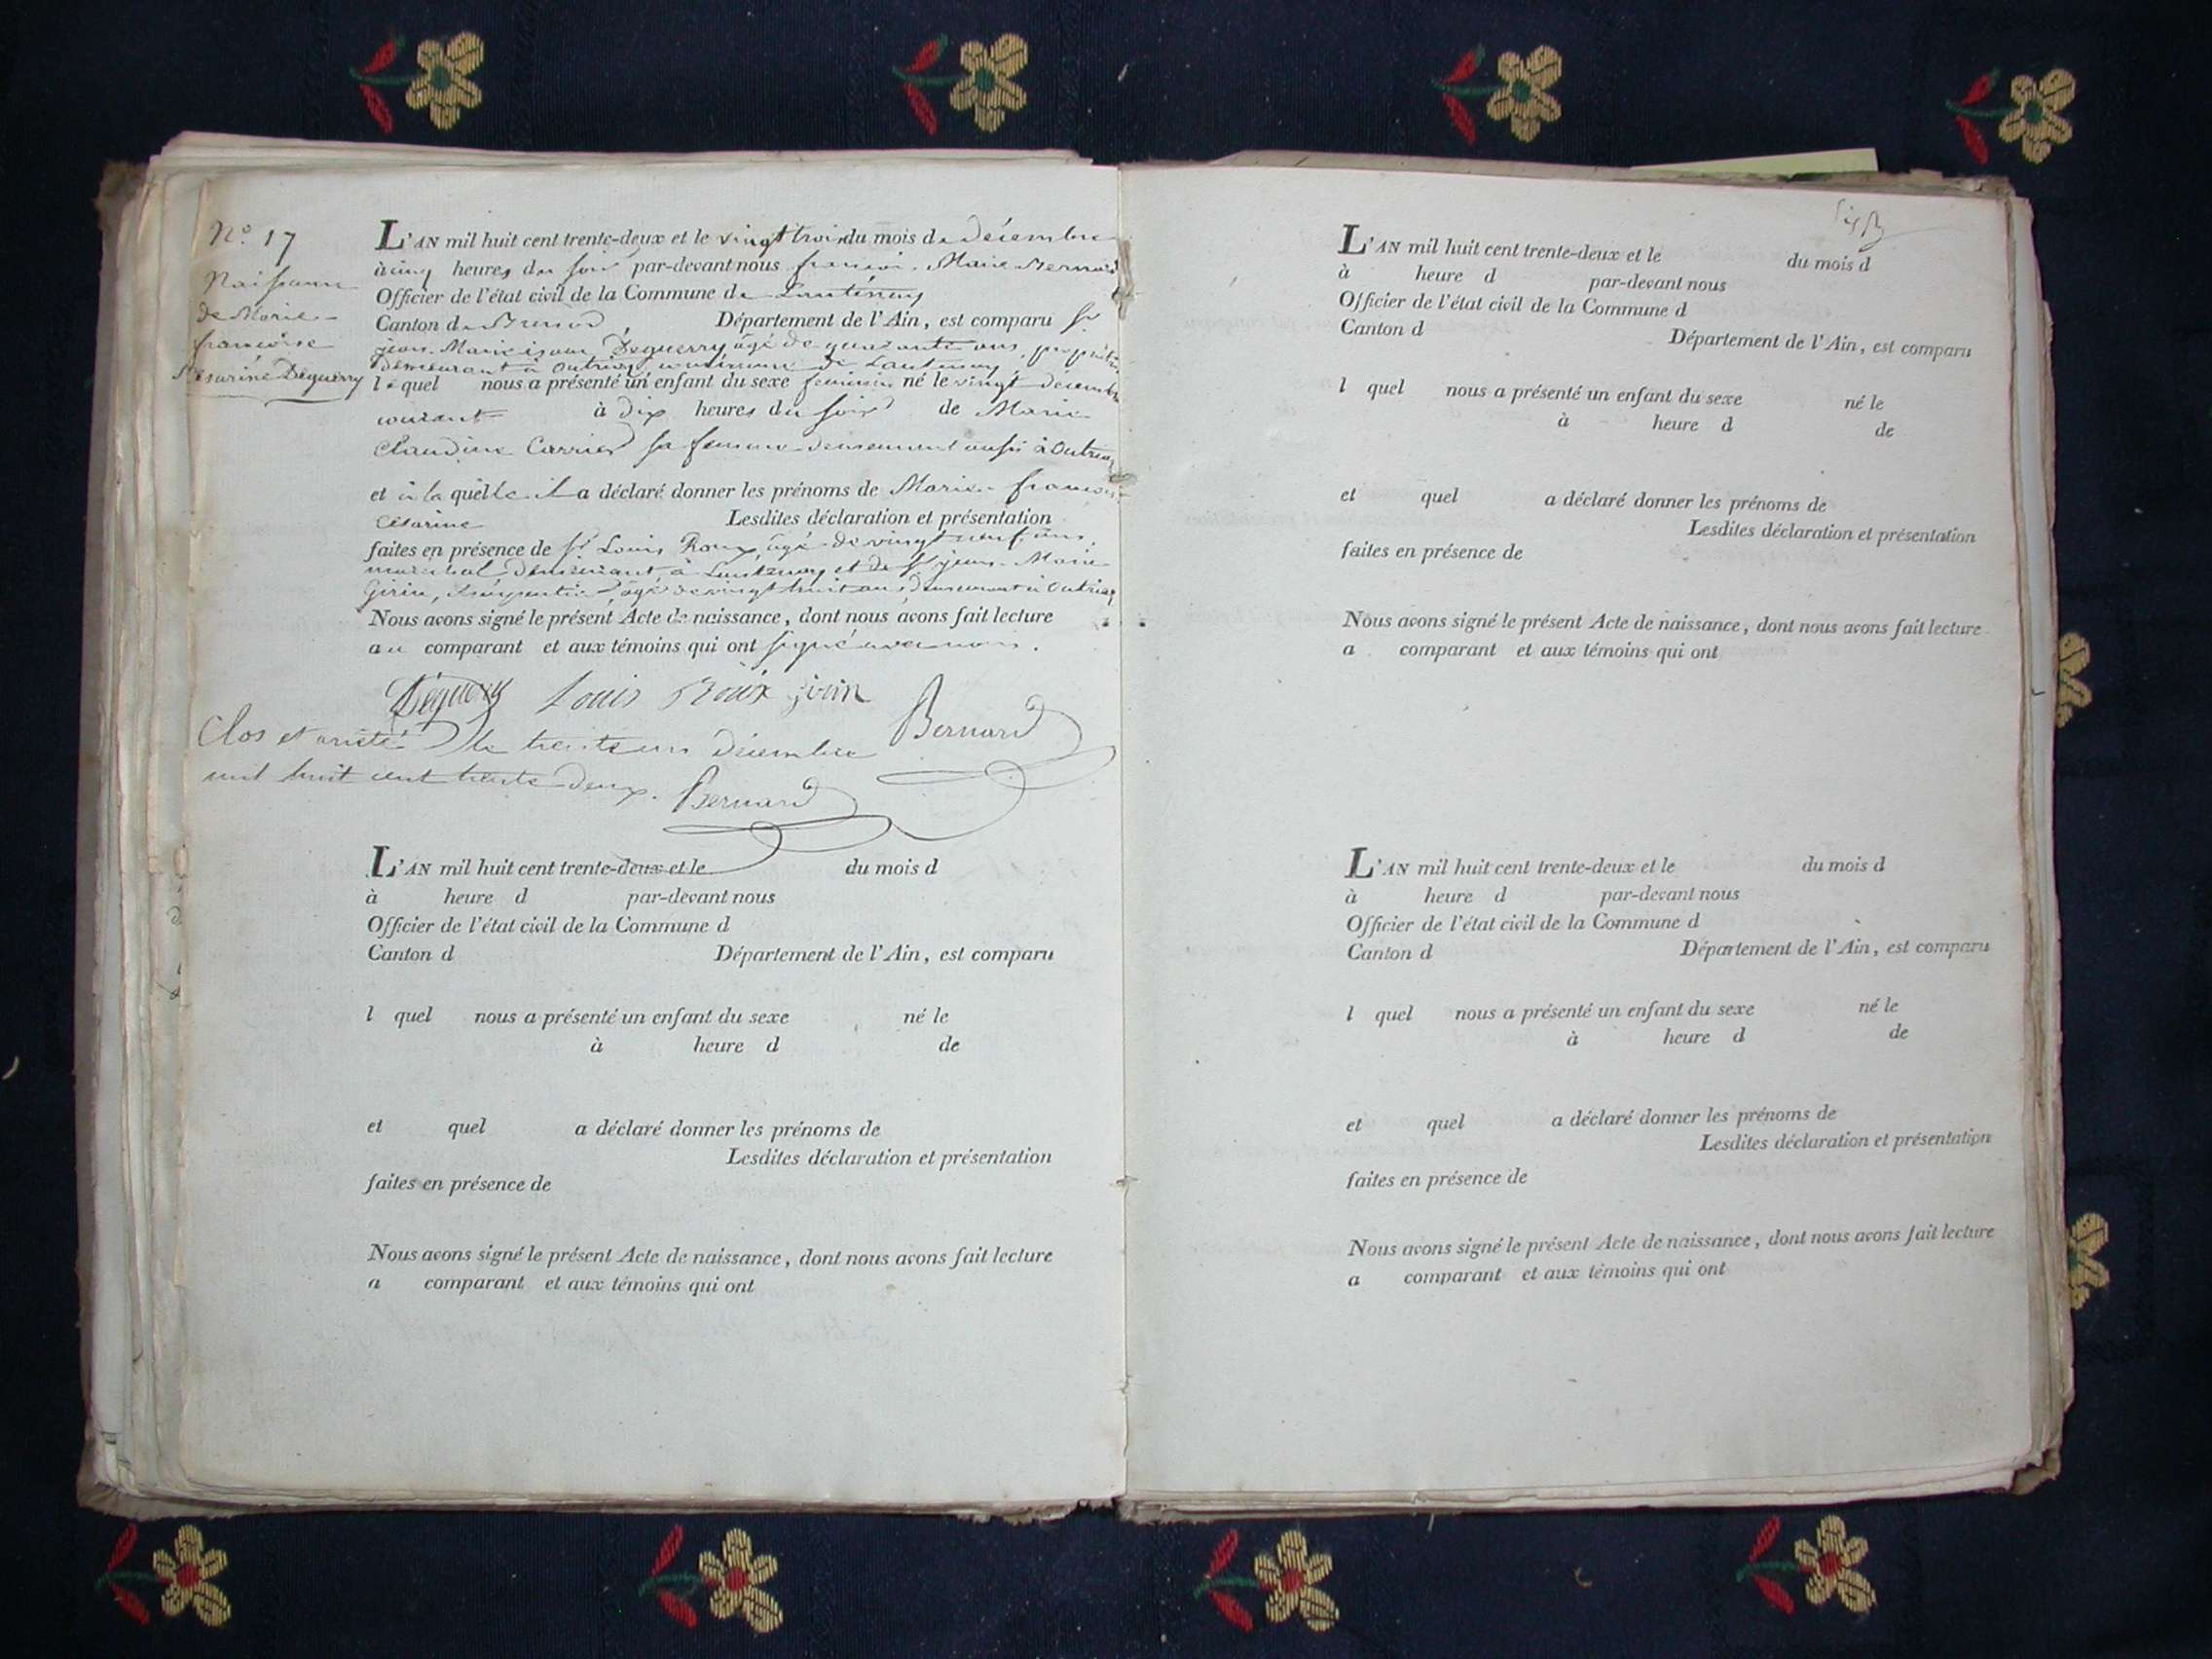 N.º 17
Naissance
de Marie
françoise
Césarine Déguerry
L'AN mil huit cent trente-deux et le vingt trois du mois de décembre
à cinq heures du soir par-devant nous françois Marie Bernard
Officier de l'état civil de la Commune de Lantenay
Canton de Brenod, Département de l'Ain, est comparu Sr
jean-Marie Déguerry âgé de quarante ans, propriétaire
demeurant à Outriaz, commune de Lantenay,
lequel nous a présenté un enfant du sexe féminin né le vingt décembre
courant à dix heures du soir de Marie
Claudine Carrier sa femme demeurant aussi à Outriaz
et à laquelle il a déclaré donner les prénoms de Marie françoise
césarine Lesdites déclaration et présentation
faites en présence de Sr Louis Roux, âgé de vingt neuf ans,
maréchal demeurant à Lantenay et de Sr jean-Marie
Girin, charpentier, âgé de vingt huit ans, demeurant à Outriaz
Nous avons signé le présent Acte de naissance, dont nous avons fait lecture
au comparant et aux témoins qui ont signé avec nous.
Déguerry Louis Roux jirin Bernard
Clos et arrêté le trente un décembre
mil huit cent trente deux. Bernard
L'AN mil huit cent trente-deux et le du mois d
à heure d par-devant nous
Officier de l'état civil de la Commune d
Canton d Département de l'Ain, est comparu
l quel nous a présenté un enfant du sexe né le
à heure d de
et quel a déclaré donner les prénoms de
Lesdites déclaration et présentation
faites en présence de
Nous avons signé le présent Acte de naissance, dont nous avons fait lecture
a comparant et aux témoins qui ont
L'AN mil huit cent trente-deux et le du mois d
à heure d par-devant nous
Officier de l'état civil de la Commune d
Canton d Département de l'Ain, est comparu
l quel nous a présenté un enfant du sexe né le
à heure d de
et quel a déclaré donner les prénoms de
Lesdites déclaration et présentation
faites en présence de
Nous avons signé le présent Acte de naissance, dont nous avons fait lecture
a comparant et aux témoins qui ont
L'AN mil huit cent trente-deux et le du mois d
à heure d par-devant nous
Officier de l'état civil de la Commune d
Canton d Département de l'Ain, est comparu
l quel nous a présenté un enfant du sexe né le
à heure d de
et quel a déclaré donner les prénoms de
Lesdites déclaration et présentation
faites en présence de
Nous avons signé le présent Acte de naissance, dont nous avons fait lecture
a comparant et aux témoins qui ont